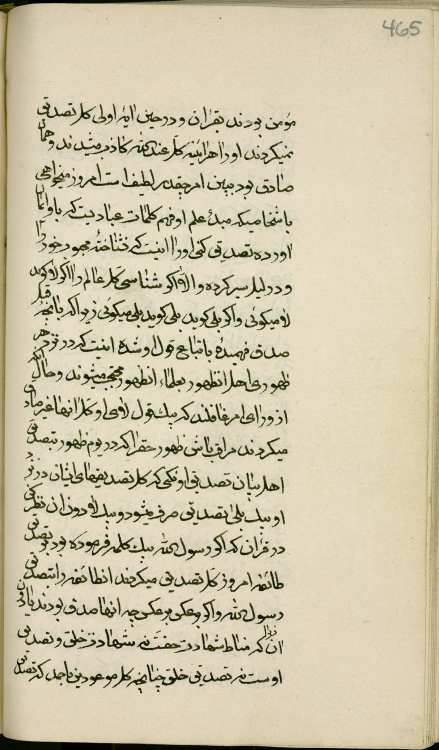 465
مؤمن بودند بقران و در حین آیهٔ اولی کل تصدیق
نمیکردند او را هرآینه کل عند الله کاذب میشدند و همان
صادق بود ببین امر چقدر لطیف است امروز میخواهی
باشخاصیکه مبدء علم او فهم کلمات عبادیست که باو ایمان
اورده تصدیق کنی او را اینست که نشناختهٔ محبوب خود را
و در دلیل سیر کرده و الا اگر شناسی کل عالم را اگر لا گویند
لا میگوئی و اگر بلی گویند بلی میگوئی زیرا که بانچه قبل
صدق فهمیدهٔ باتباع قول او شده اینست که در نزد هر
ظهوری اهل ان ظهور بعلماء ان ظهور محتجب میشوند و حال انکه
از ورای امر غافلند که بیک قول لای او کل انها غیر صادق
میگردند مراقب باش ظهور حق را که در یوم ظهور بتصدیق
اهل بیان تصدیق او نکنی که کل تصدیقهای ایشان در نزد
او بیک بلی تصدیق صرف میشود و بیک لا دون ان نظر کن
در قران که اگر رسول الله بیک کلمه فرموده بود تصدیق
طائفه امروز کل تصدیق میکردند ان طائفه را بتصدیق
رسول الله و اگر بر عکس بر عکس چه انها صدق بودند یا دون
ان زیرا که مناط شهادت حقست نه شهادت خلق و تصدیق
اوست نه تصدیق خلق چنانچه کل موعودین باحمد که تصدیق